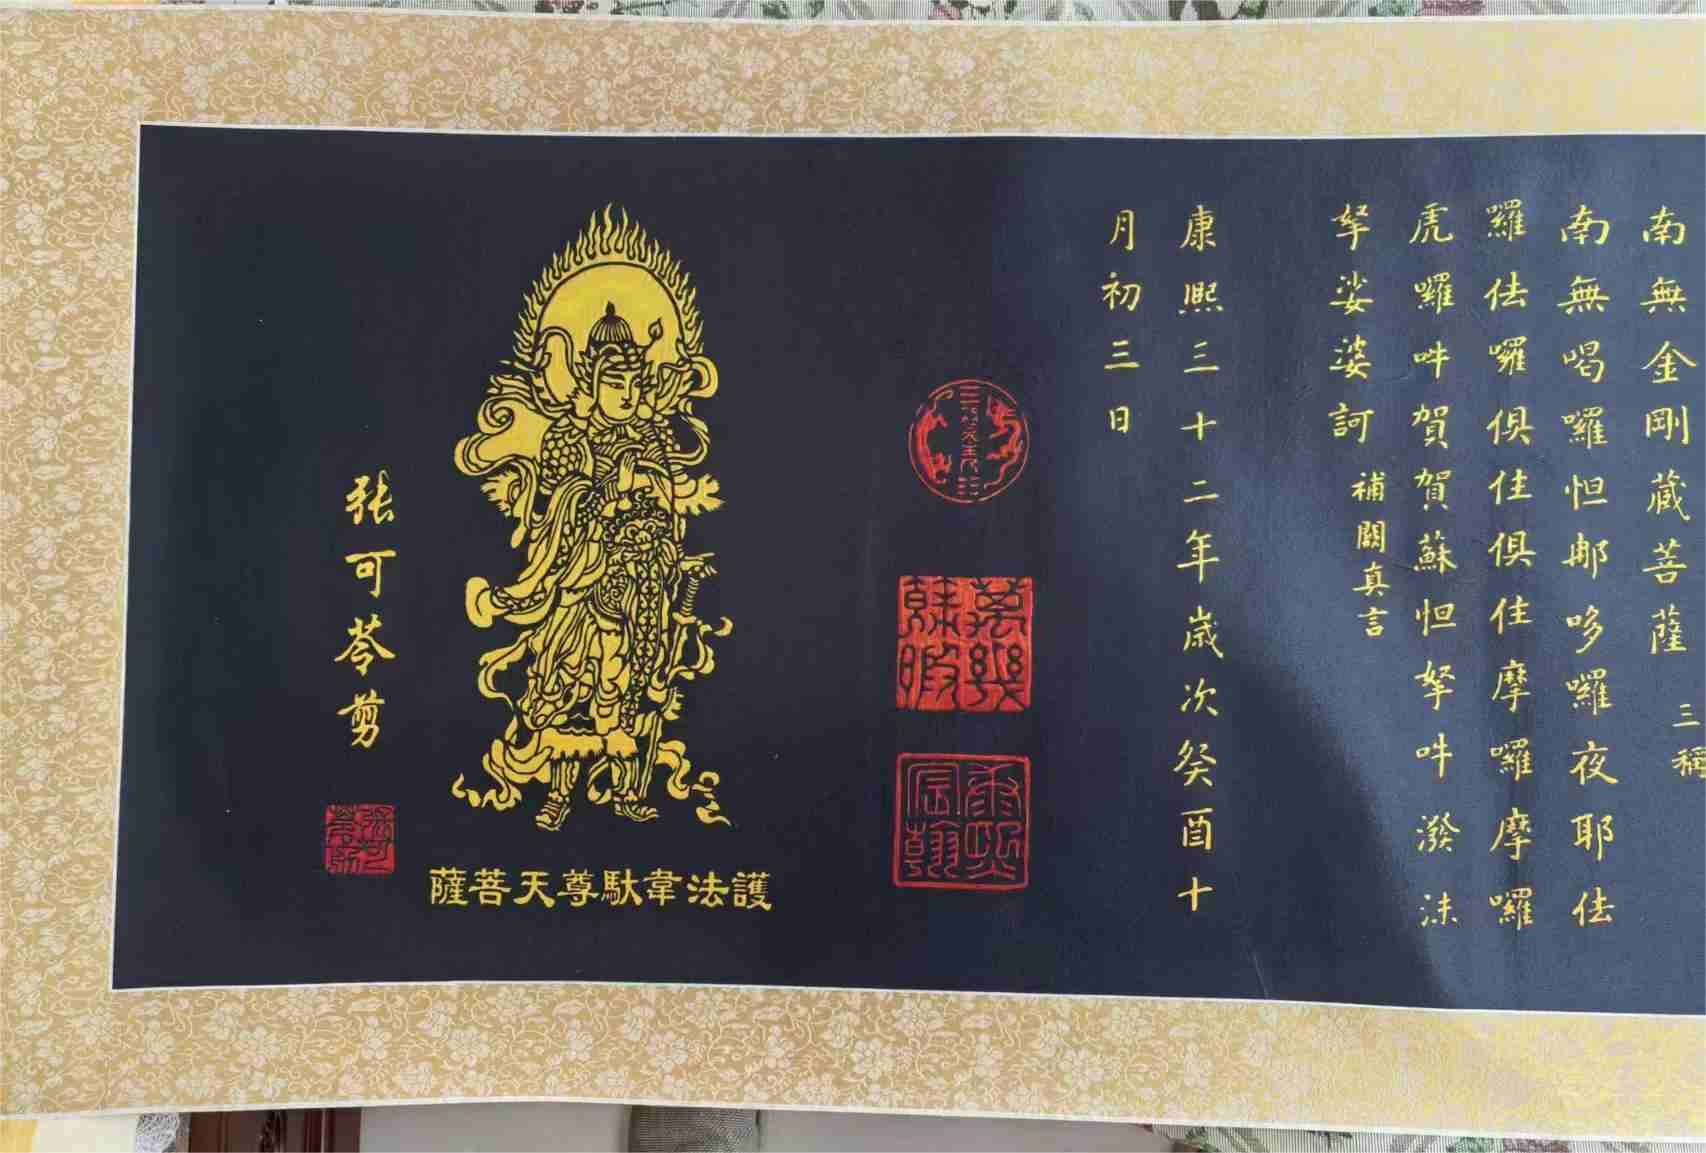 南無金剛藏菩薩 三稱
南無喝囉怛那哆囉夜耶佉
羅佉囉俱住俱住摩囉摩囉
虎囉吽賀賀蘇怛拏吽潑沫
拏娑婆訶 補闕真言
康熙三十二年歲次癸酉十
月初三日
萬幾餘暇
康熙宸翰
護法韋馱尊天菩薩
张可苓剪